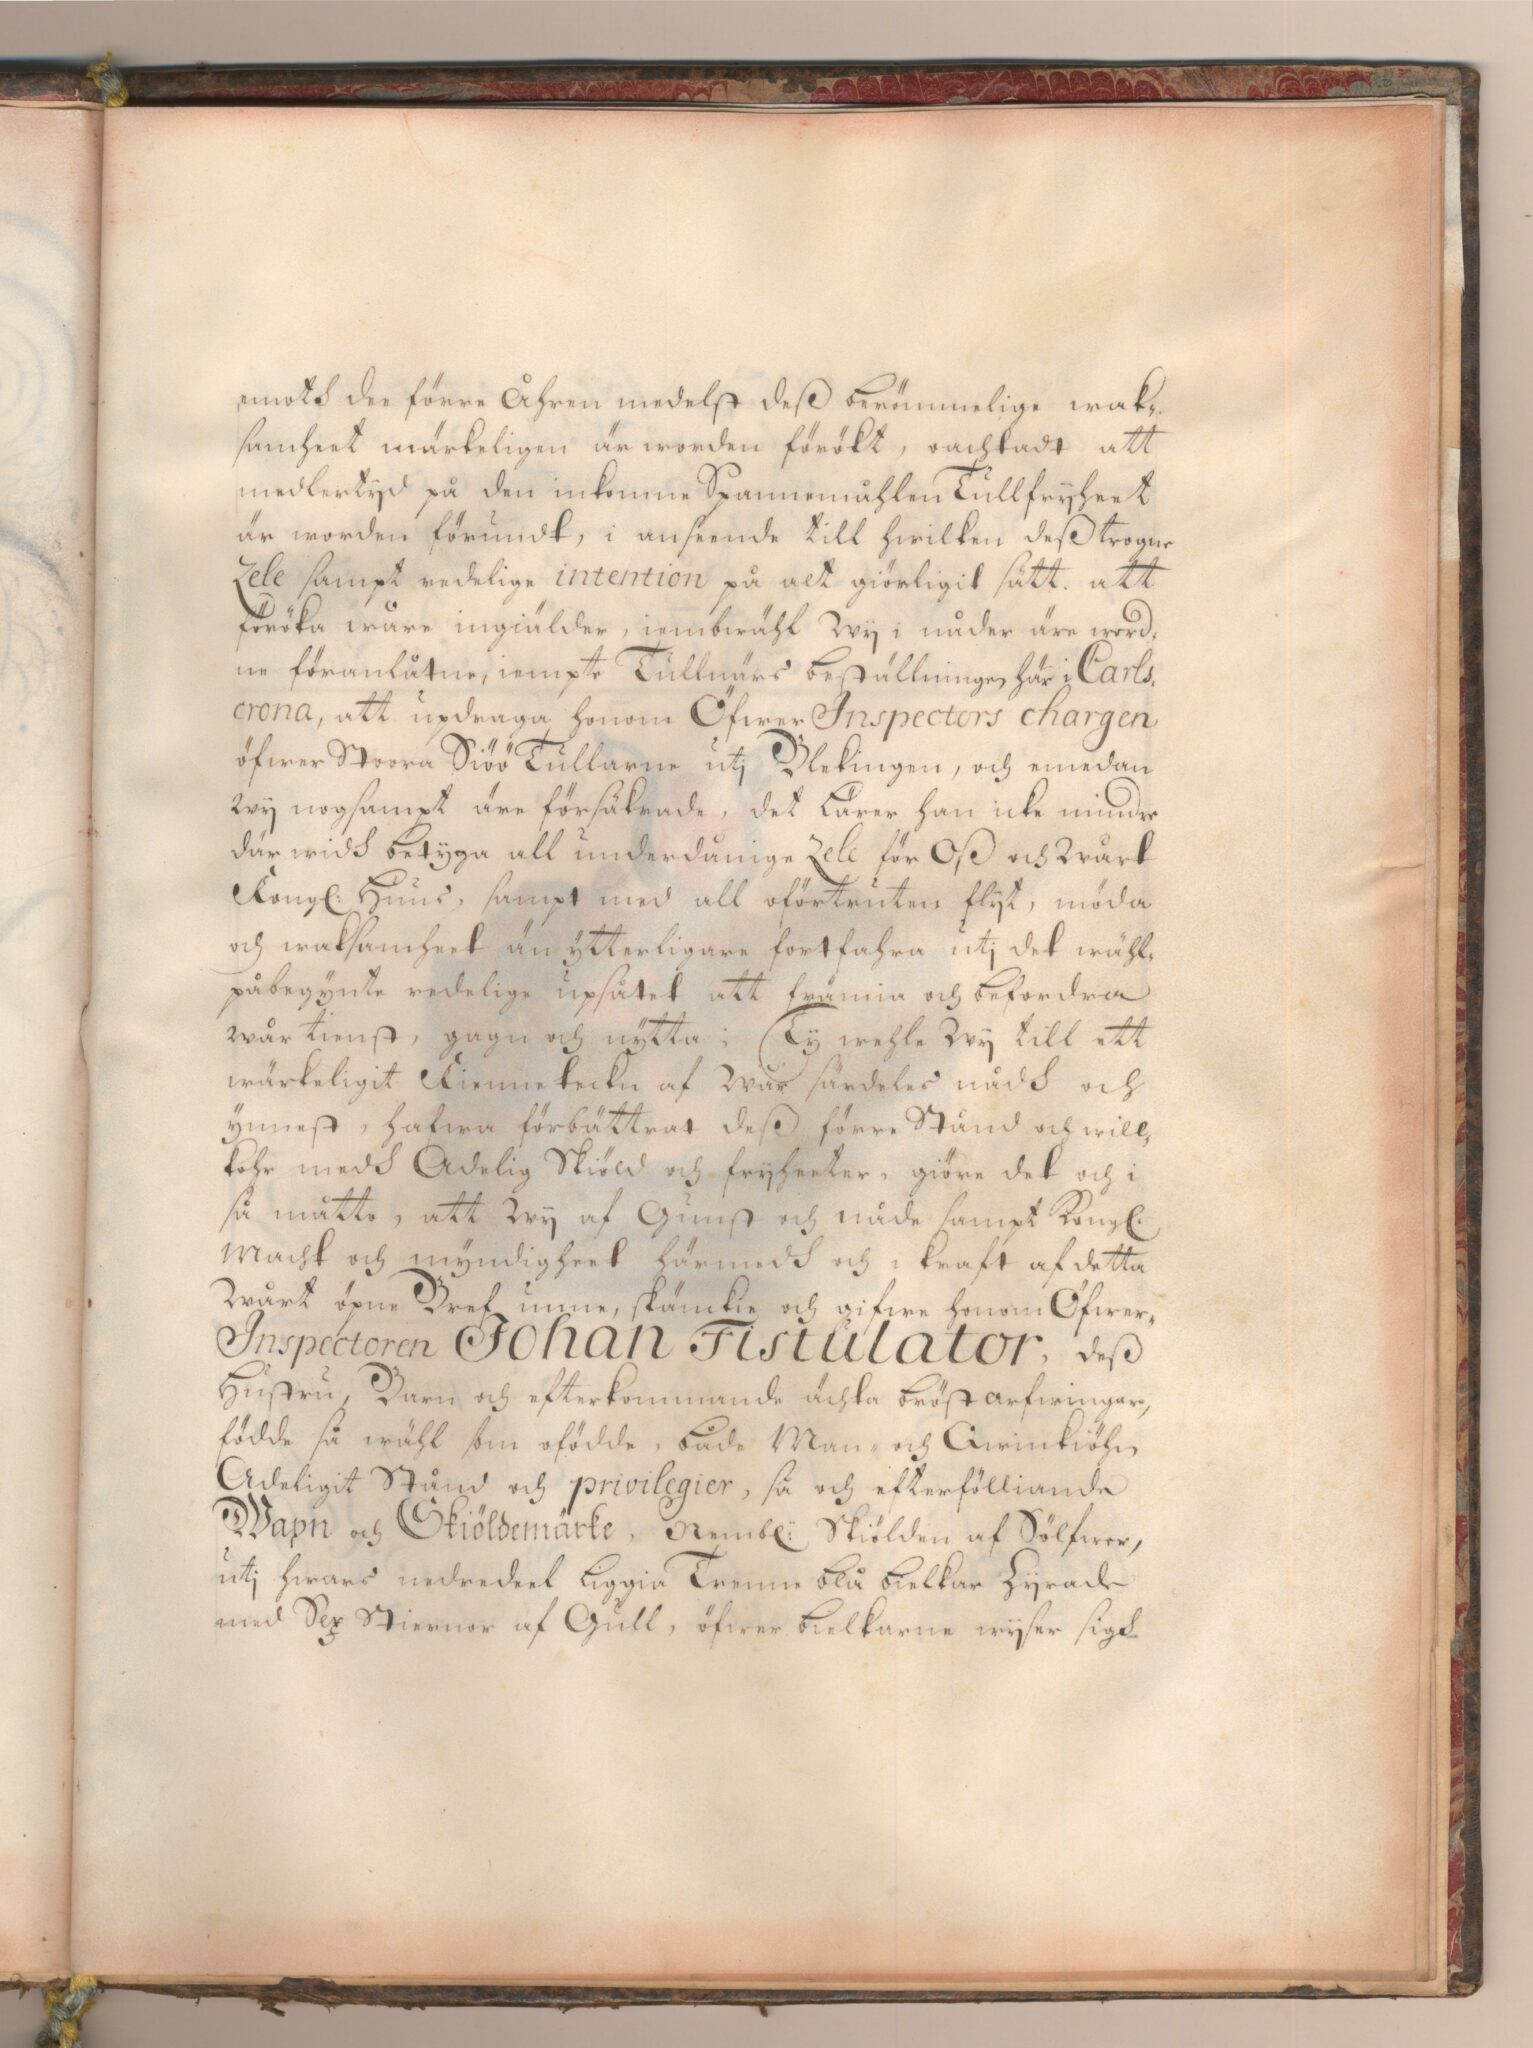 emoth dee förre Åhren medelst deß berömmelige wak-
samheet märkeligen är worden förökt, oachtadt att
medlertyd på den inkomne Spannemåhlen Tullfryheet
är worden förundt, i anseende till hwilken deß trogne
Zele sampt redelige intention på alt giörligit sätt att
föröka wåre ingiälder, iembwähl Wij i nåder äre word-
ne föranlåtne, iempte Tullnärs beställningen här i Carls-
crona, att updraga honom Öfwer Inspectors chargen
öfwer Stoora Siöö Tullarne utj Blekingen, och emedan
Wij nogsampt äre försäkrade, det Lärer han icke minder
där widh betyga all underdånige Zele för Oß och Wårt
Kongl: Huus, sampt med all oförtruten flyt, möda
och waksamheet än ytterligare fortfahra utj det wähl-
påbegynte redelige upsåtet att främia och befordra
wår tienst, gagn och nytta; Ty wehle Wij till ett
wärkeligit Kienneteckn af Wår särdeles nådh och
ynnest, hafwa förbättrat deß förre Stånd och will-
kohr medh Adelig Skiöld och fryheeter, giöre det och i
så måtto, att Wij af Gunst och nåde sampt Kongl:
Macht och myndigheet härmedh och i kraft af detta
Wårt öpne Bref unne, skänkie och gifwe honom Öfwer-
Inspectoren Johan Fistulator, deß
Hustru, Barn och efterkommande ächta bröst arfwingar,
födde så wähl som ofödde, både Man- och Qwinkiöhn
Adeligit Stånd och privilegier, så och efterfölliande
Wapn och Skiöldemärke, Nembl: Skiölden af Sölfwer,
utj hwars nedredeel Liggia Trenne blå bielkar Zyrade
med Sex Stiernor af Gull, öfwer bielkarne wyser sigh